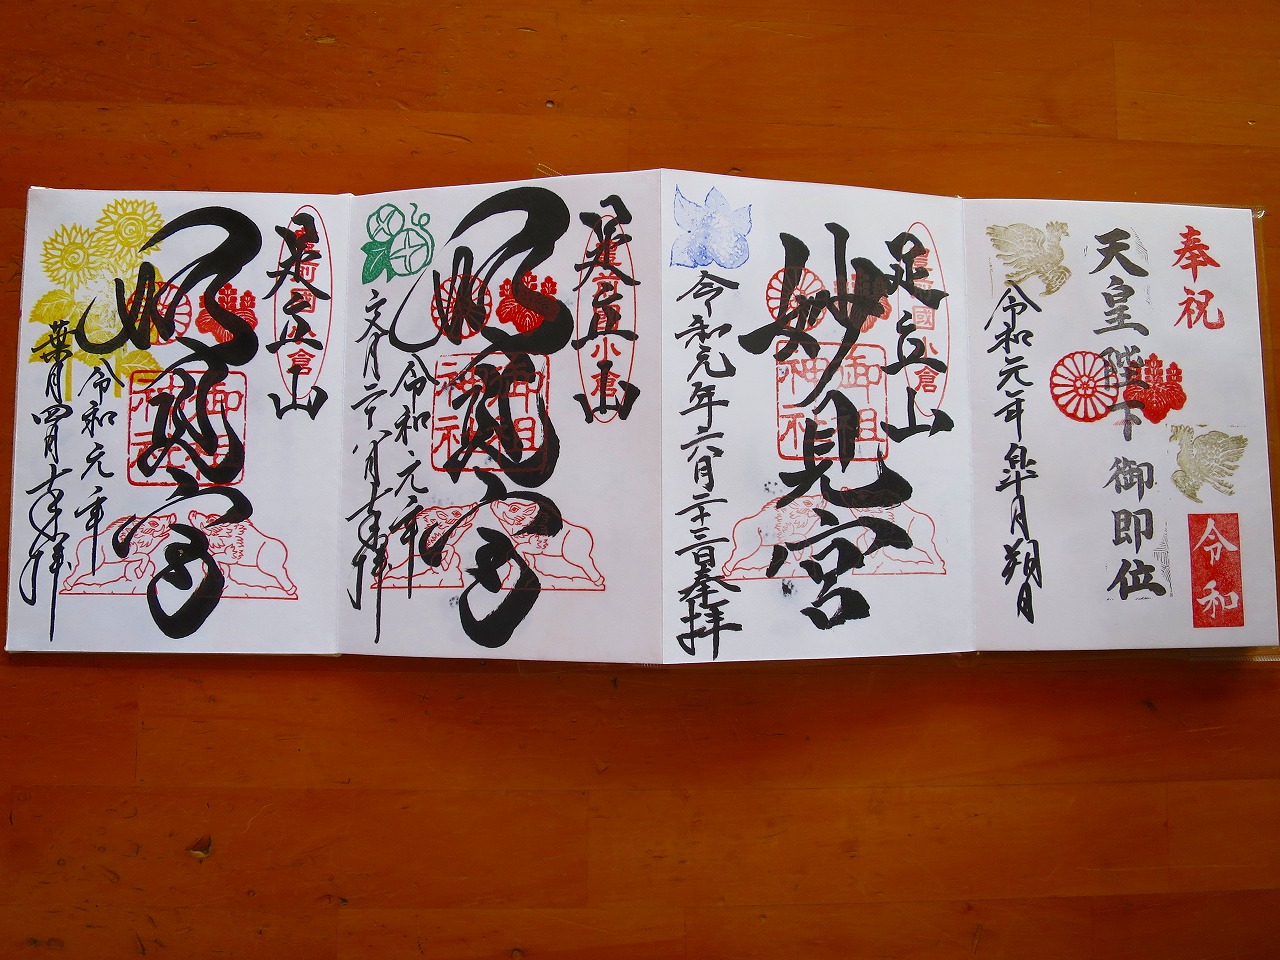 奉祝
天皇陛下御即位
令和
令和元年皐月朔日
足立山
小倉
妙見宮
御祖神社
令和元年六月二十三日奉拝
足立山
小倉
妙見宮
御祖神社
令和元年
文月二十八日奉拝
足立山
倉
妙見宮
御祖神社
令和元年
葉月四日奉拝